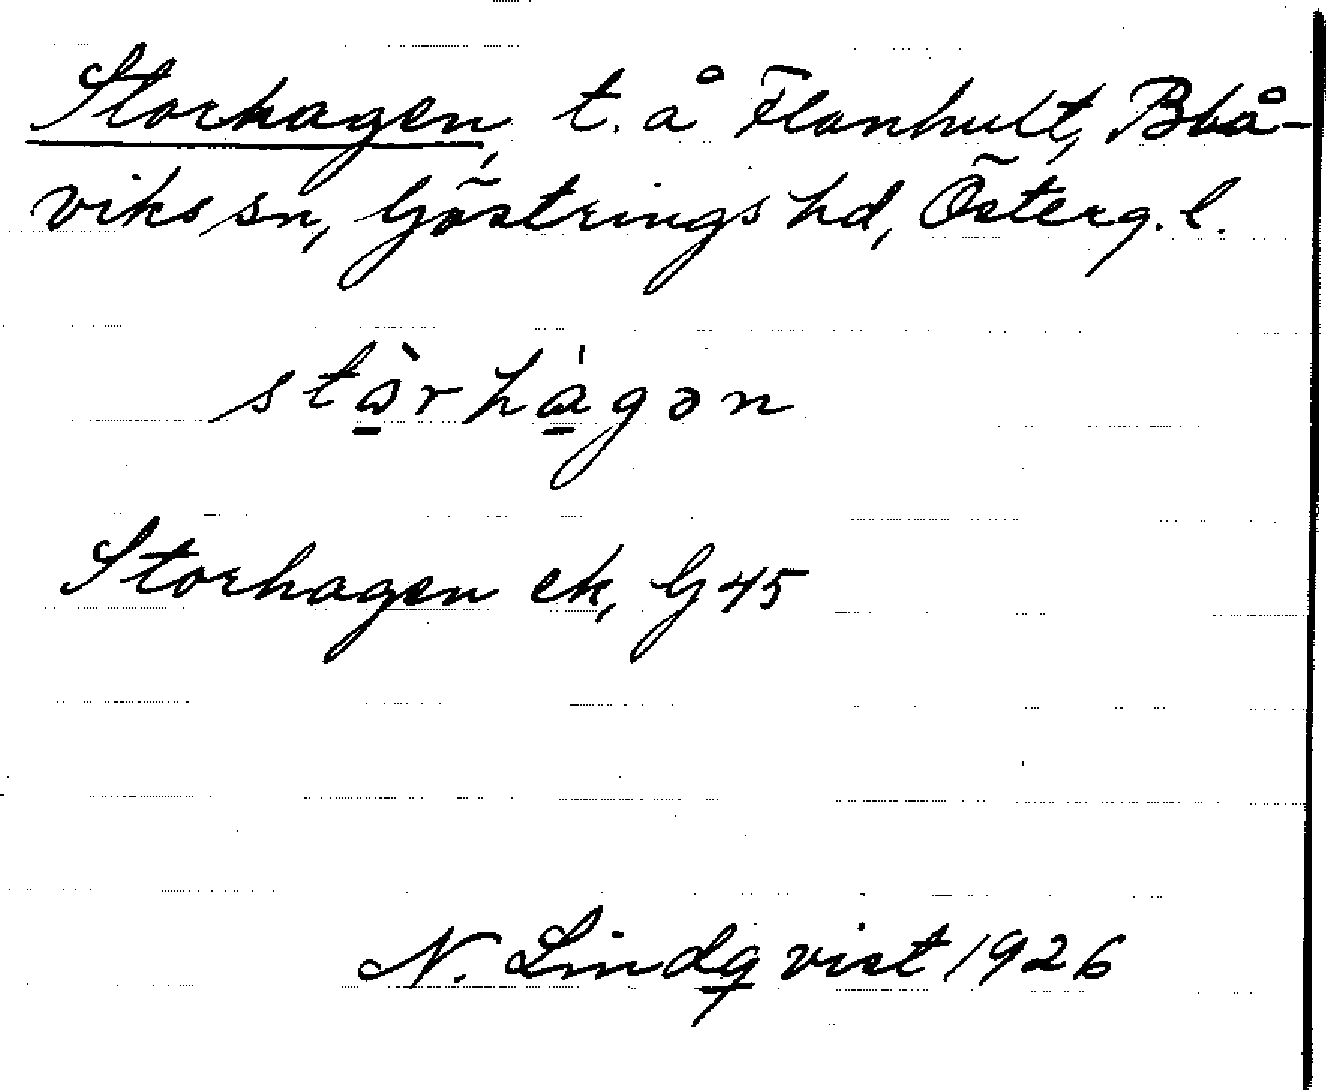 Storhagen, t. å Flanhult, Blå-
viks sn, Göstrings hd, Österg. l.
stɷ̀rhágən
Storhagen ek, G 45
N. Lindqvist 1926